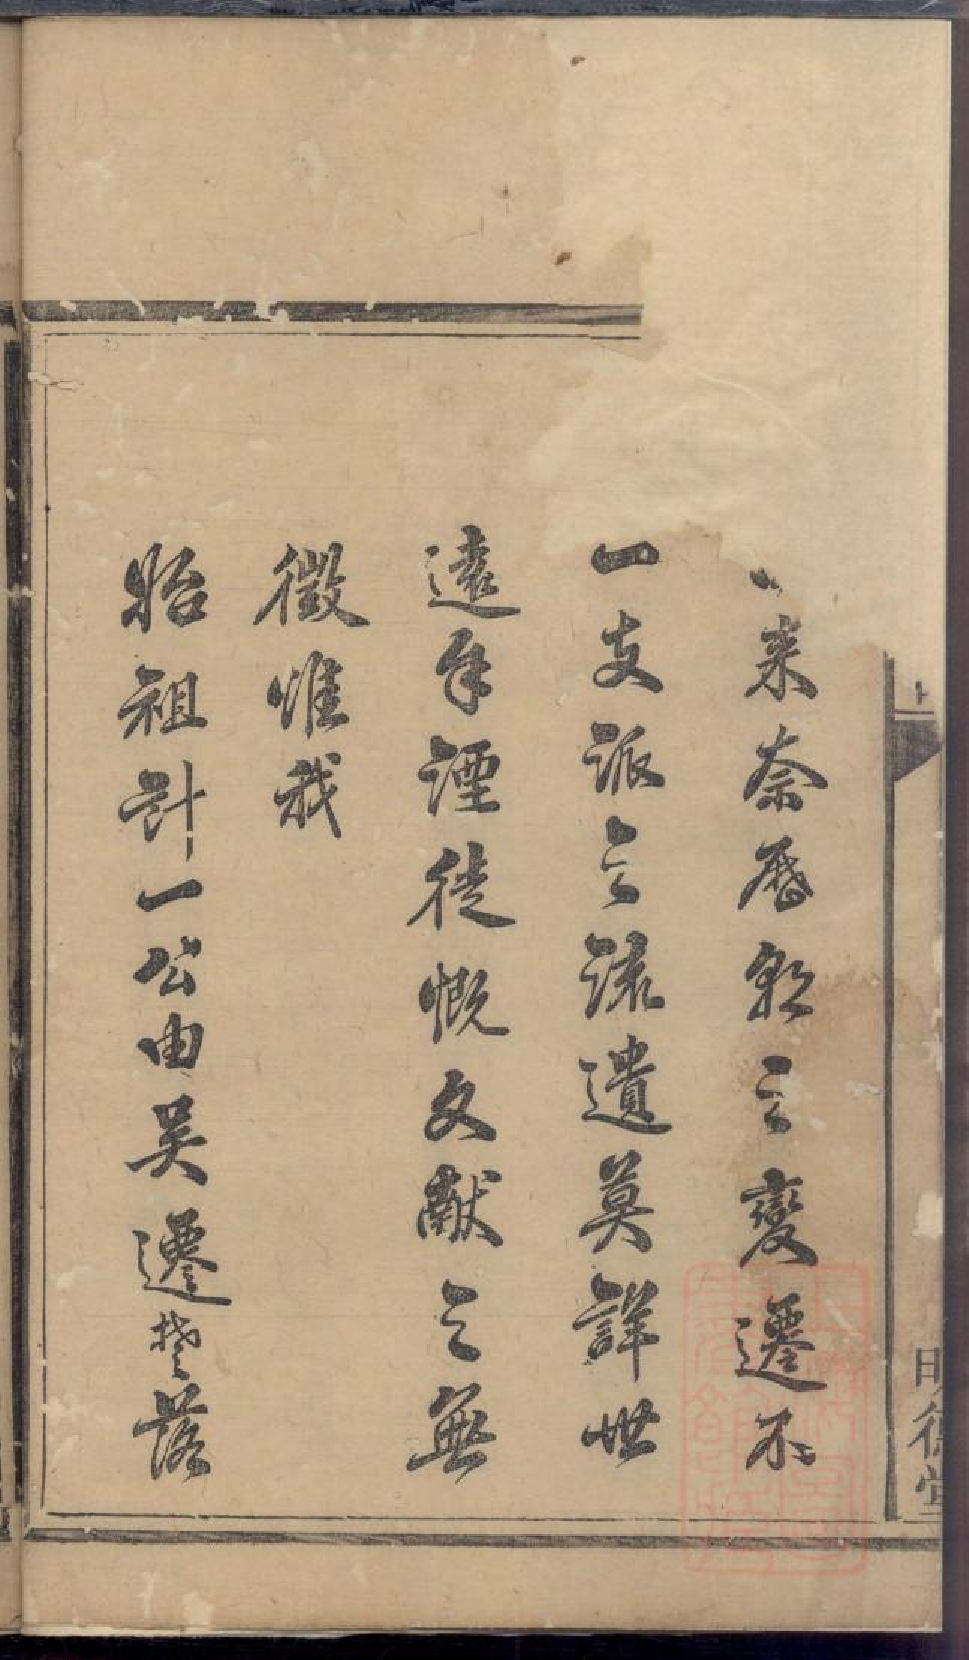 来奈歷朝之變遷不
一支派之流遺莫詳世
遠年湮徒慨文献之無
徵惟我
始祖計一公由吴遷楚落
明德堂